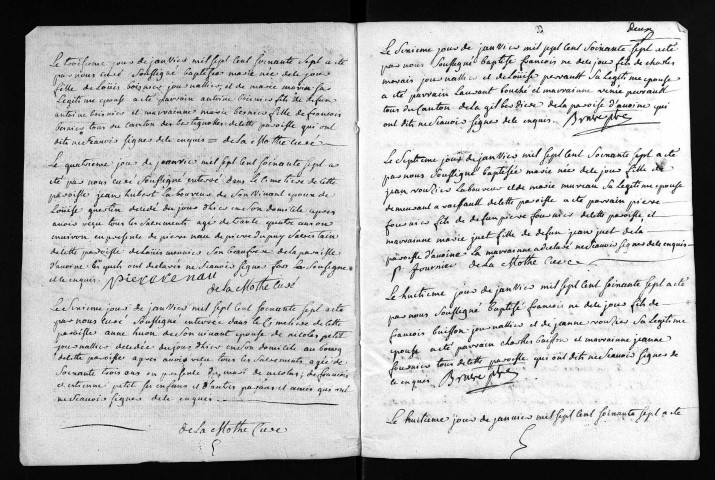 Le troisieme jour de janvier mil sept cent soixante sept a eté
par nous curé soussigné baptisée marie née de ce jour
fille de Louis boisnier journallier, et de marie moriar sa
Legitime epouse a été parvain antoine boisnier fils de defun
antoine boisnier et marvainne marie bernier fille de francois
bernier tous du canton des de cette paroisse qui ont
dit ne scavoir signer de ce enquis = de la Mothe Curé
Le quatrieme jour de janvier mil sept cent soixante sept a
eté par nous curé soussigné enterré dans le cimetiere de cette
paroisse jean hubert laboureur de son vivant epoux de
Louise decedé du jour d'hier en son domicile apres
avoir reçu tous les sacrements agé de trante quatre ans ou
environ en presence de pierre nau de pierre dupuy sacristain
de cette paroisse de Louis son beaufrere de la paroisse
d'avoine Lesquels ont declaré ne scavoir signer fors le soussigné
de ce enquis. pierre renau
de la Mothe curé
Le sixieme jour de janvier mil sept cent soixante sept a eté
par nous curé soussigné enterrée dans le cimetiere de cette
paroisse anne huon de son vivant epouse de nicolas petit
journallier decedée du jour d'hier en son domicile au bourg
de cette paroisse apres avoir reçu tous les sacrements agée de
soixante trois ans en presence du mari de nicolas, de francois
et etienne petit ses enfans et d'autres parans et amis qui ont
ne scavoir signer de ce enquis
de la Mothe Curé
deux
Le sixieme jour de janvier mil sept cent soixante sept a eté
par nous soussigné baptisé francois né de ce jour fils de charles
morais journallier et de Louise perrault sa Legitime epouse
a eté parvain Laurant touché et marvainne renée perrault
tous du canton de la gilberdiere de la paroisse d'avoine qui
ont dit ne scavoir signer de ce enquis. Bruere pbre
Le septieme jour de janvier mil sept cent soixante sept a eté
par nous soussigné baptisée marie née de ce jour fille de
jean rouzier laboureur et de marie mureau sa Legitime epouse
demeurant a rassault de cette paroisse a eté parvain pierre
fourier fils de defun pierre fourier de cette paroisse, et
marvainne marie juet fille de defun jean juet de la
paroisse d'avoine. La marvainne a declaré ne scavoir signer de ce enquis
p fournier de la Mothe Curé
Le huitieme jour de janvier mil sept cent soixante sept a eté
par nous soussigné baptisé francois né de ce jour fils de
francois buisson journallier et de jeanne rouzier sa Legitime
epouse a eté parvain charles buisson et marvainne jeanne
fournier tous de cette paroisse qui ont dit ne scavoir signer de
ce enquis Bruere pbre
Le huitieme jour de janvier mil sept cent soixante sept a eté